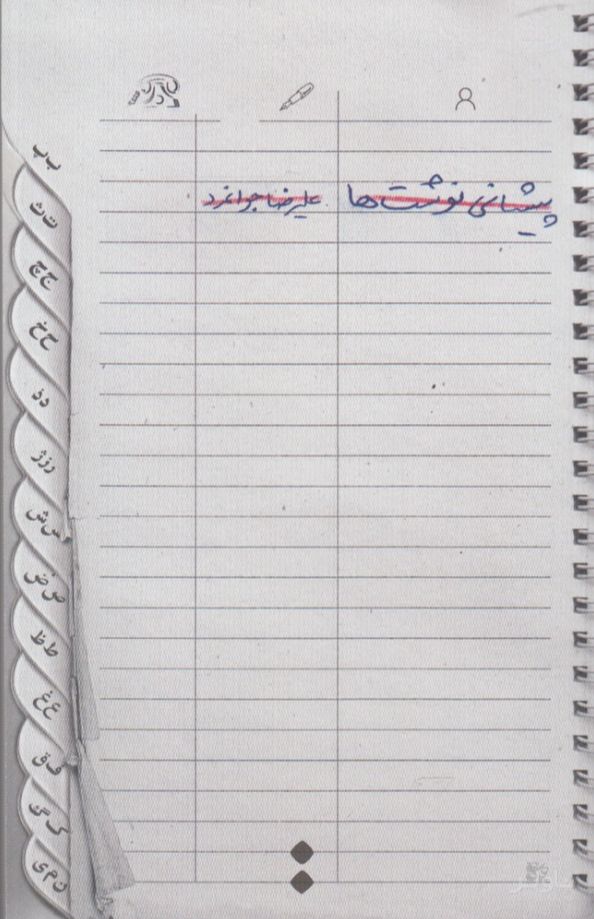 پیشانی نوشت‌ها علیرضا جوانمرد
ب پ
ت ث
ج چ
ح خ
د ذ
ر ز ژ
س ش
ص ض
ط ظ
ع غ
ف ق
ک گ ل
ن م ی